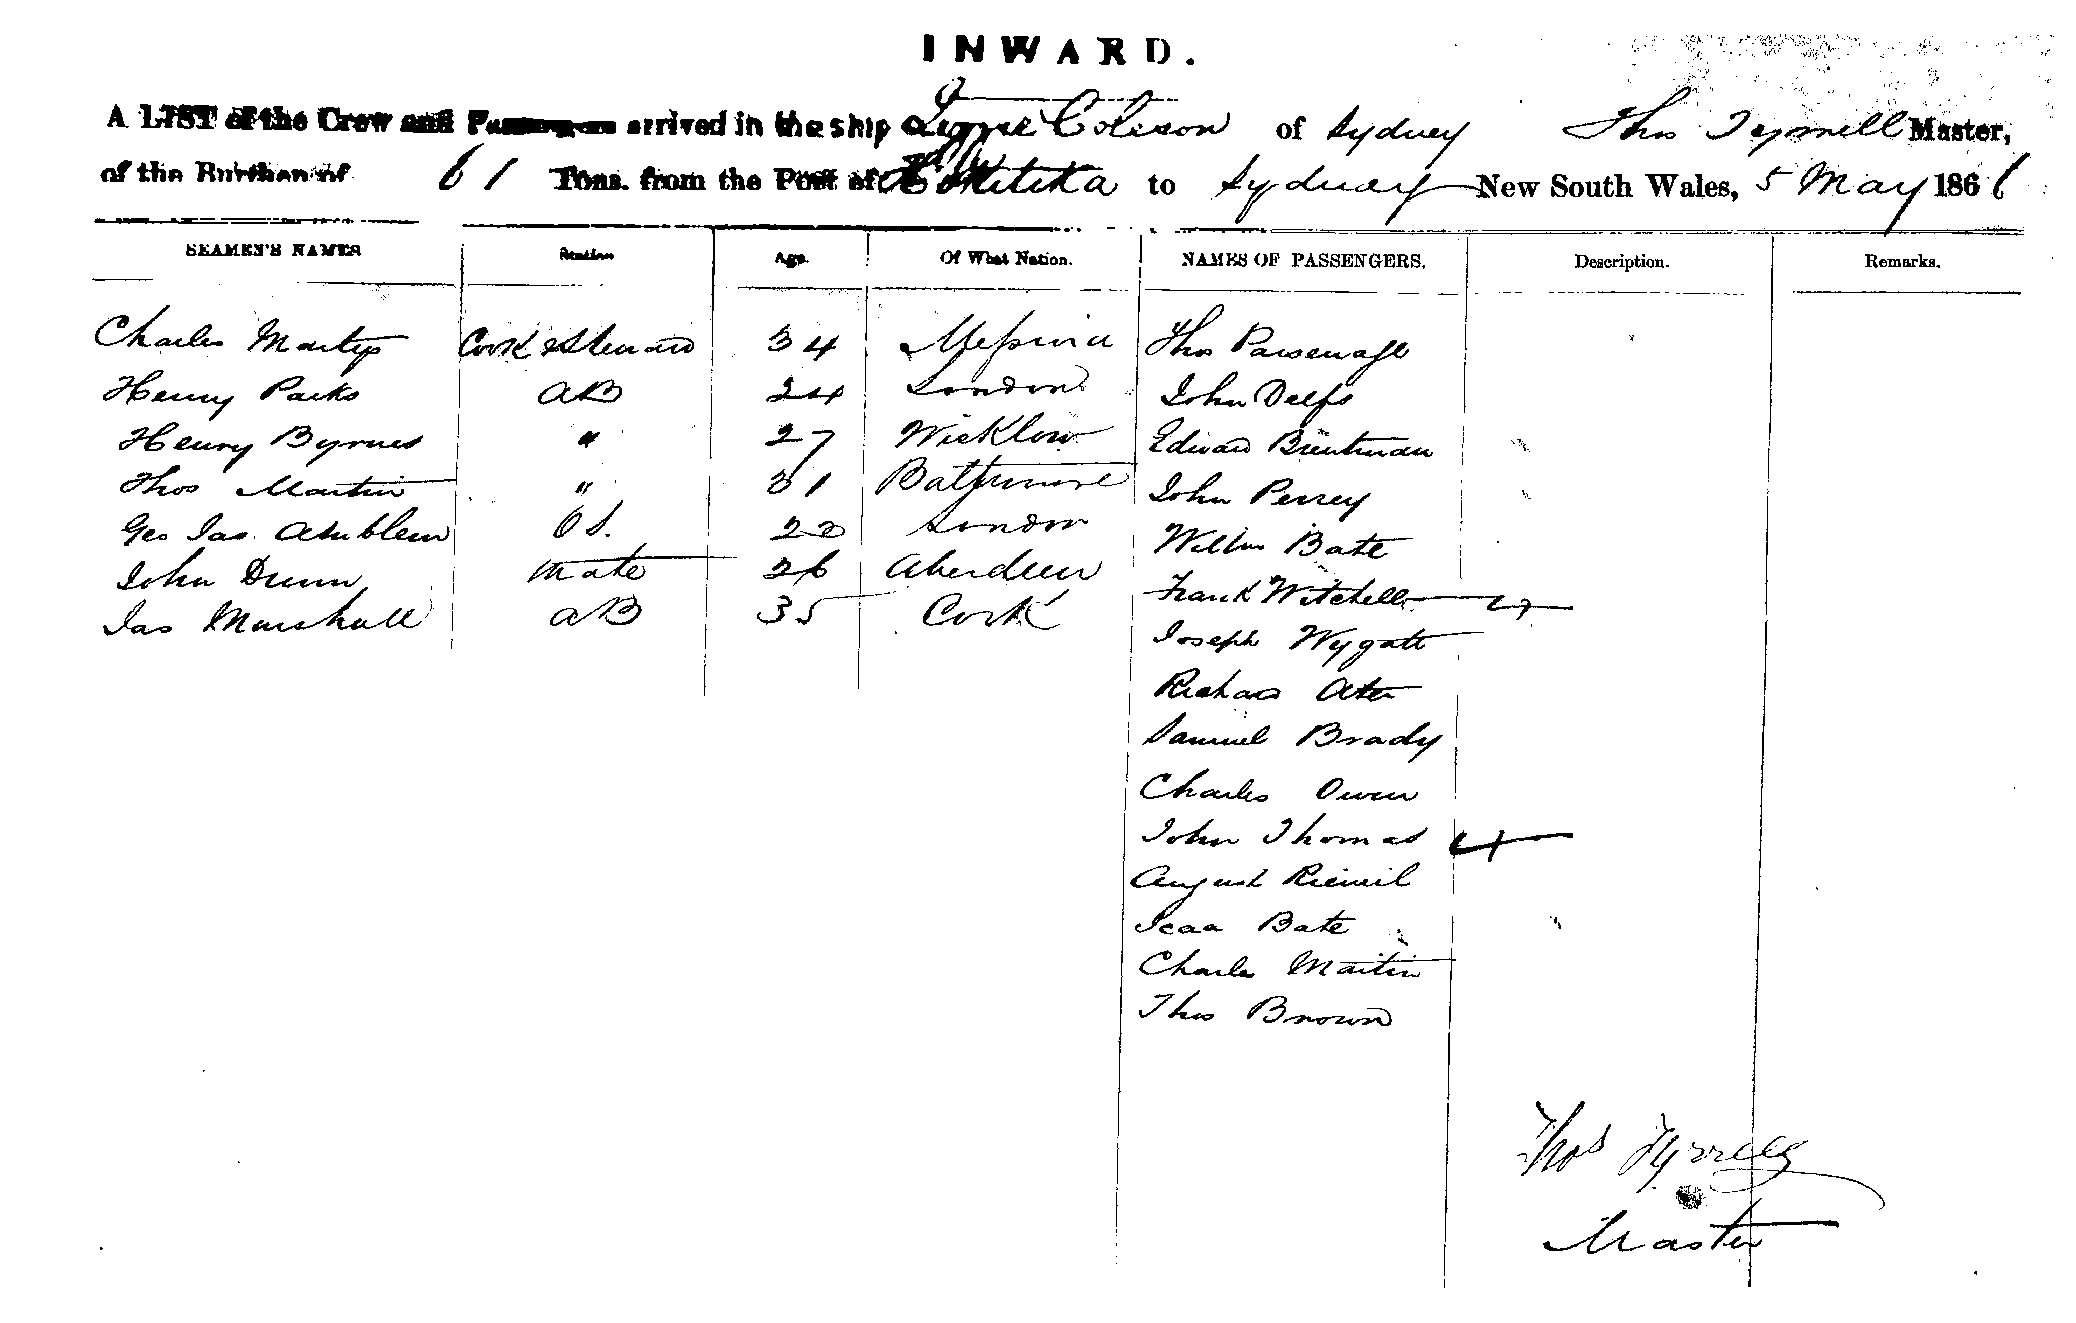 INWARD.
A LIST of the Crew and Passengers arrived in the ship Coleson of Sydney Thos Tyrrell Master,
of the Burthen of 61 Tons. from the Port of Hokitika to Sydney New South Wales, 5 May 1866
SEAMEN'S NAMES Station Age. Of What Nation. NAMES OF PASSENGERS. Description. Remarks.
Charles Cook & Steward 34 Messina Thos Parsenage
Henry Parks AB 24 London John Delfs
Henry Byrnes " 27 Wicklow Edward
Thos Martin " 31 Baltimore John Perrey
Geo Jas OS. 22 London Willm Bate
John Dunn Mate 26 Aberdeen Frank Witchell
Jas Marshall AB 35 Cork Joseph Wygatt
Richard
Samuel Brady
Charles Owen
John Thomas 4
August
Bate
Charles Martin
Thos Brown
Thos Tyrrell
Master